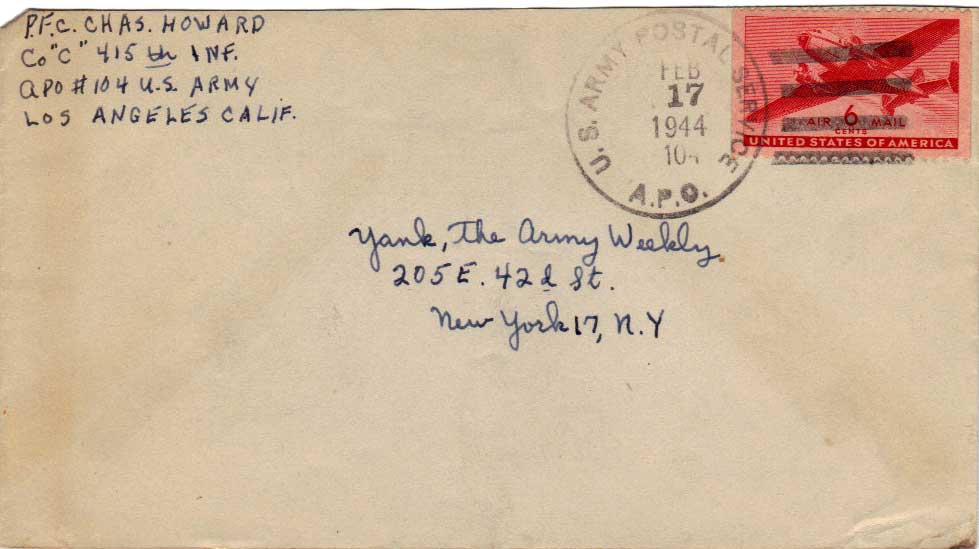 P.F.C. CHAS. HOWARD
Co "C" 415 th INF.
APO #104 U.S. ARMY
LOS ANGELES CALIF.
U.S. ARMY POSTAL SERVICE
FEB
17
1944
104
A.P.O.
AIR 6 MAIL
CENTS
UNITED STATES OF AMERICA
Yank, The Army Weekly
205 E. 42d St.
New York 17, N.Y